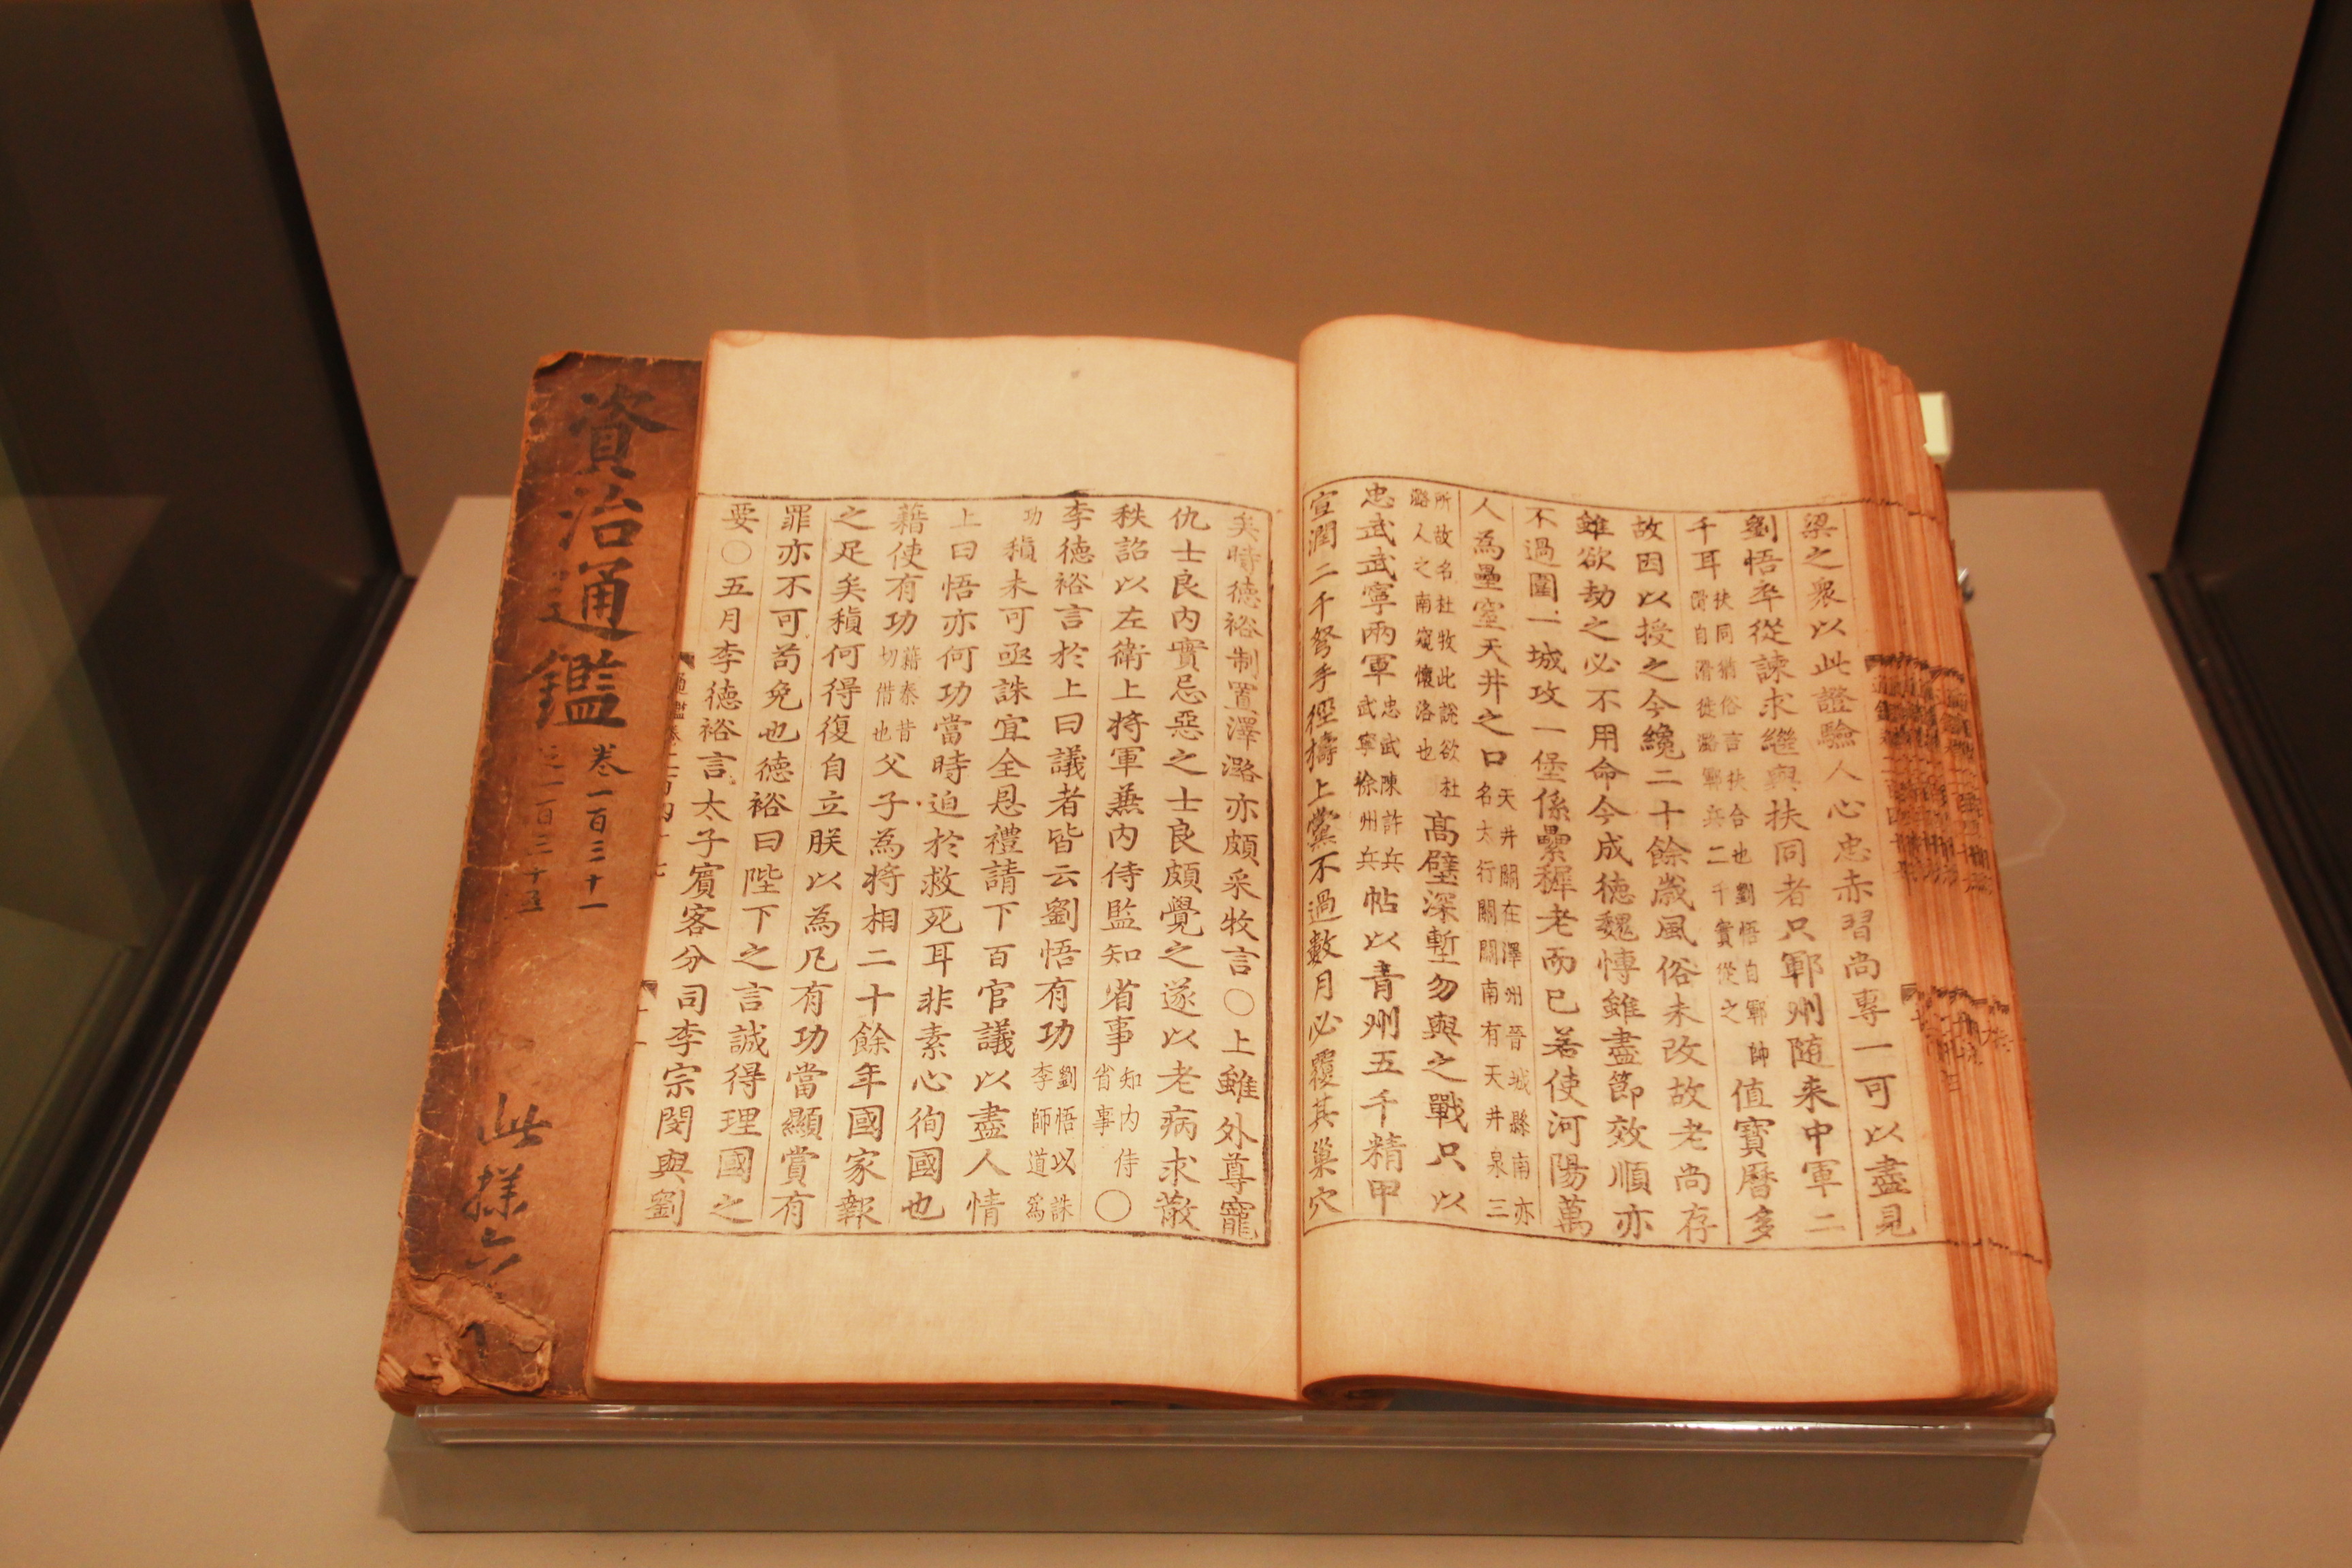 梁之衆以此證驗人心忠赤習尚專一可以盡見
劉悟卒從諫求繼與扶同者只鄆州随来中軍二
千耳扶同猶俗言扶合也劉悟自鄆帥滑自滑徙潞鄆兵二千實從之值寶曆多
故因以授之今纔二十餘歲風俗未改故老尚存
雖欲劫之必不用命今成德魏愽雖盡節效順亦
不過圍一城攻一堡係纍穉老而已若使河陽萬
人為壘窒天井之口天井關在澤州晉城縣南亦名太行關關南有天井泉三
所故名杜牧此說欲杜潞人之南窺懷洛也高壁深塹勿與之戰只以
忠武武寧兩軍忠武陳許兵武寧徐州兵帖以青州五千精甲
宣潤二千弩手徑擣上黨不過數月必覆其巢穴
矣時德裕制置澤潞亦頗采牧言○上雖外尊寵
仇士良内實忌惡之士良頗覺之遂以老病求散
秩詔以左衛上將軍兼内侍監知省事知内侍省事○
李德裕言於上曰議者皆云劉悟有功劉悟以誅李師道為
功稹未可亟誅宜全恩禮請下百官議以盡人情
上曰悟亦何功當時迫於救死耳非素心徇國也
藉使有功藉秦昔切借也父子為將相二十餘年國家報
之足矣稹何得復自立朕以為凡有功當顯賞有
罪亦不可苟免也德裕曰陛下之言誠得理國之
要○五月李德裕言太子賓客分司李宗閔與劉
資治通鑑
卷一百三十一
之一百三十五
此樣六